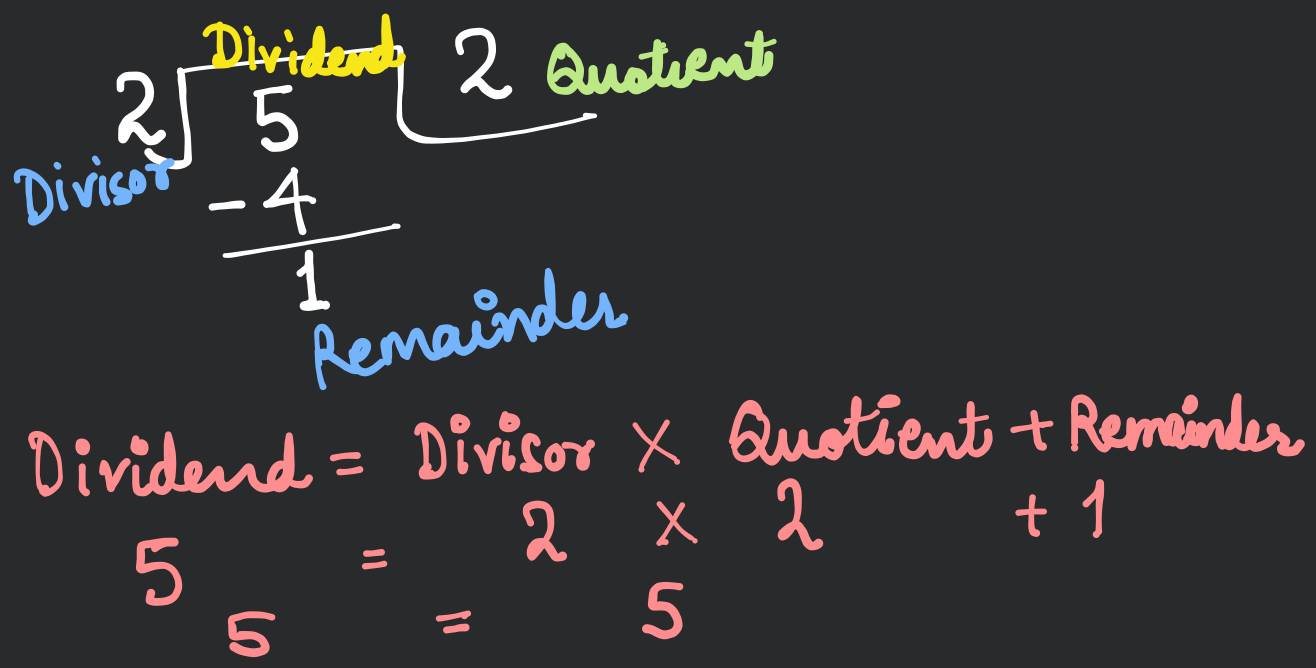 Dividend
2 5 2 Quotient
Divisor
- 4
1
Remainder
Dividend = Divisor × Quotient + Remainder
5 = 2 × 2 + 1
5 = 5